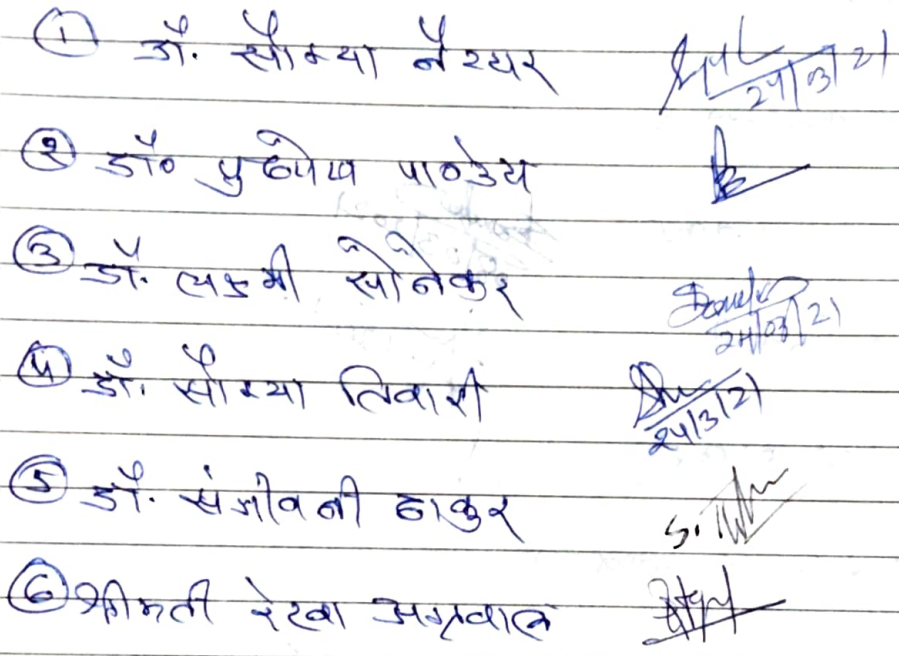 ① डॉ. सौम्या नैय्यर 24/03/21
② डॉ० पुष्पेय पाण्डेय
③ डॉ. लक्ष्मी सोनेकर 24/03/21
④ डॉ. सौम्या तिवारी 24/3/21
⑤ डॉ. संजीवनी ठाकुर
⑥ श्रीमती रेखा अग्रवाल